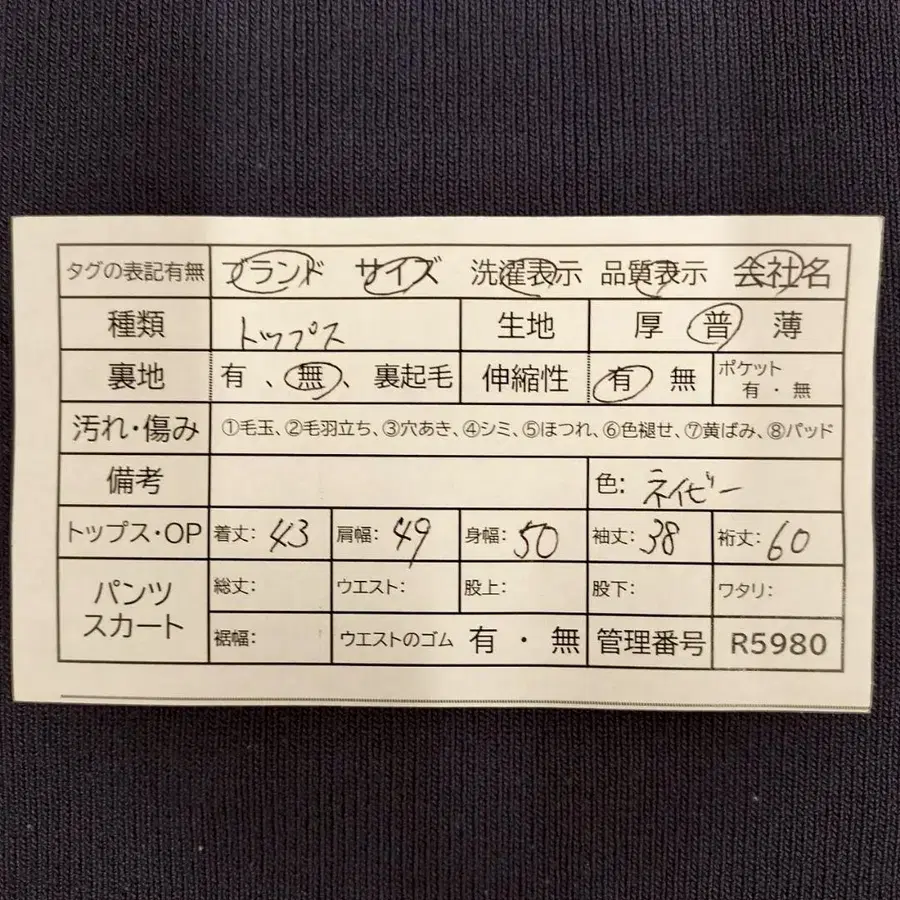 タグの表記有無 ブランド サイズ 洗濯表示 品質表示 会社名
種類 トップス 生地 厚 普 薄
裏地 有、無、裏起毛 伸縮性 有 無 ポケット 有・無
汚れ・傷み ①毛玉、②毛羽立ち、③穴あき、④シミ、⑤ほつれ、⑥色褪せ、⑦黄ばみ、⑧パッド
備考 色: ネイビー
トップス・OP 着丈: 43 肩幅: 49 身幅: 50 袖丈: 38 裄丈: 60
パンツ スカート 総丈: ウエスト: 股上: 股下: ワタリ:
裾幅: ウエストのゴム 有・無 管理番号 R5980